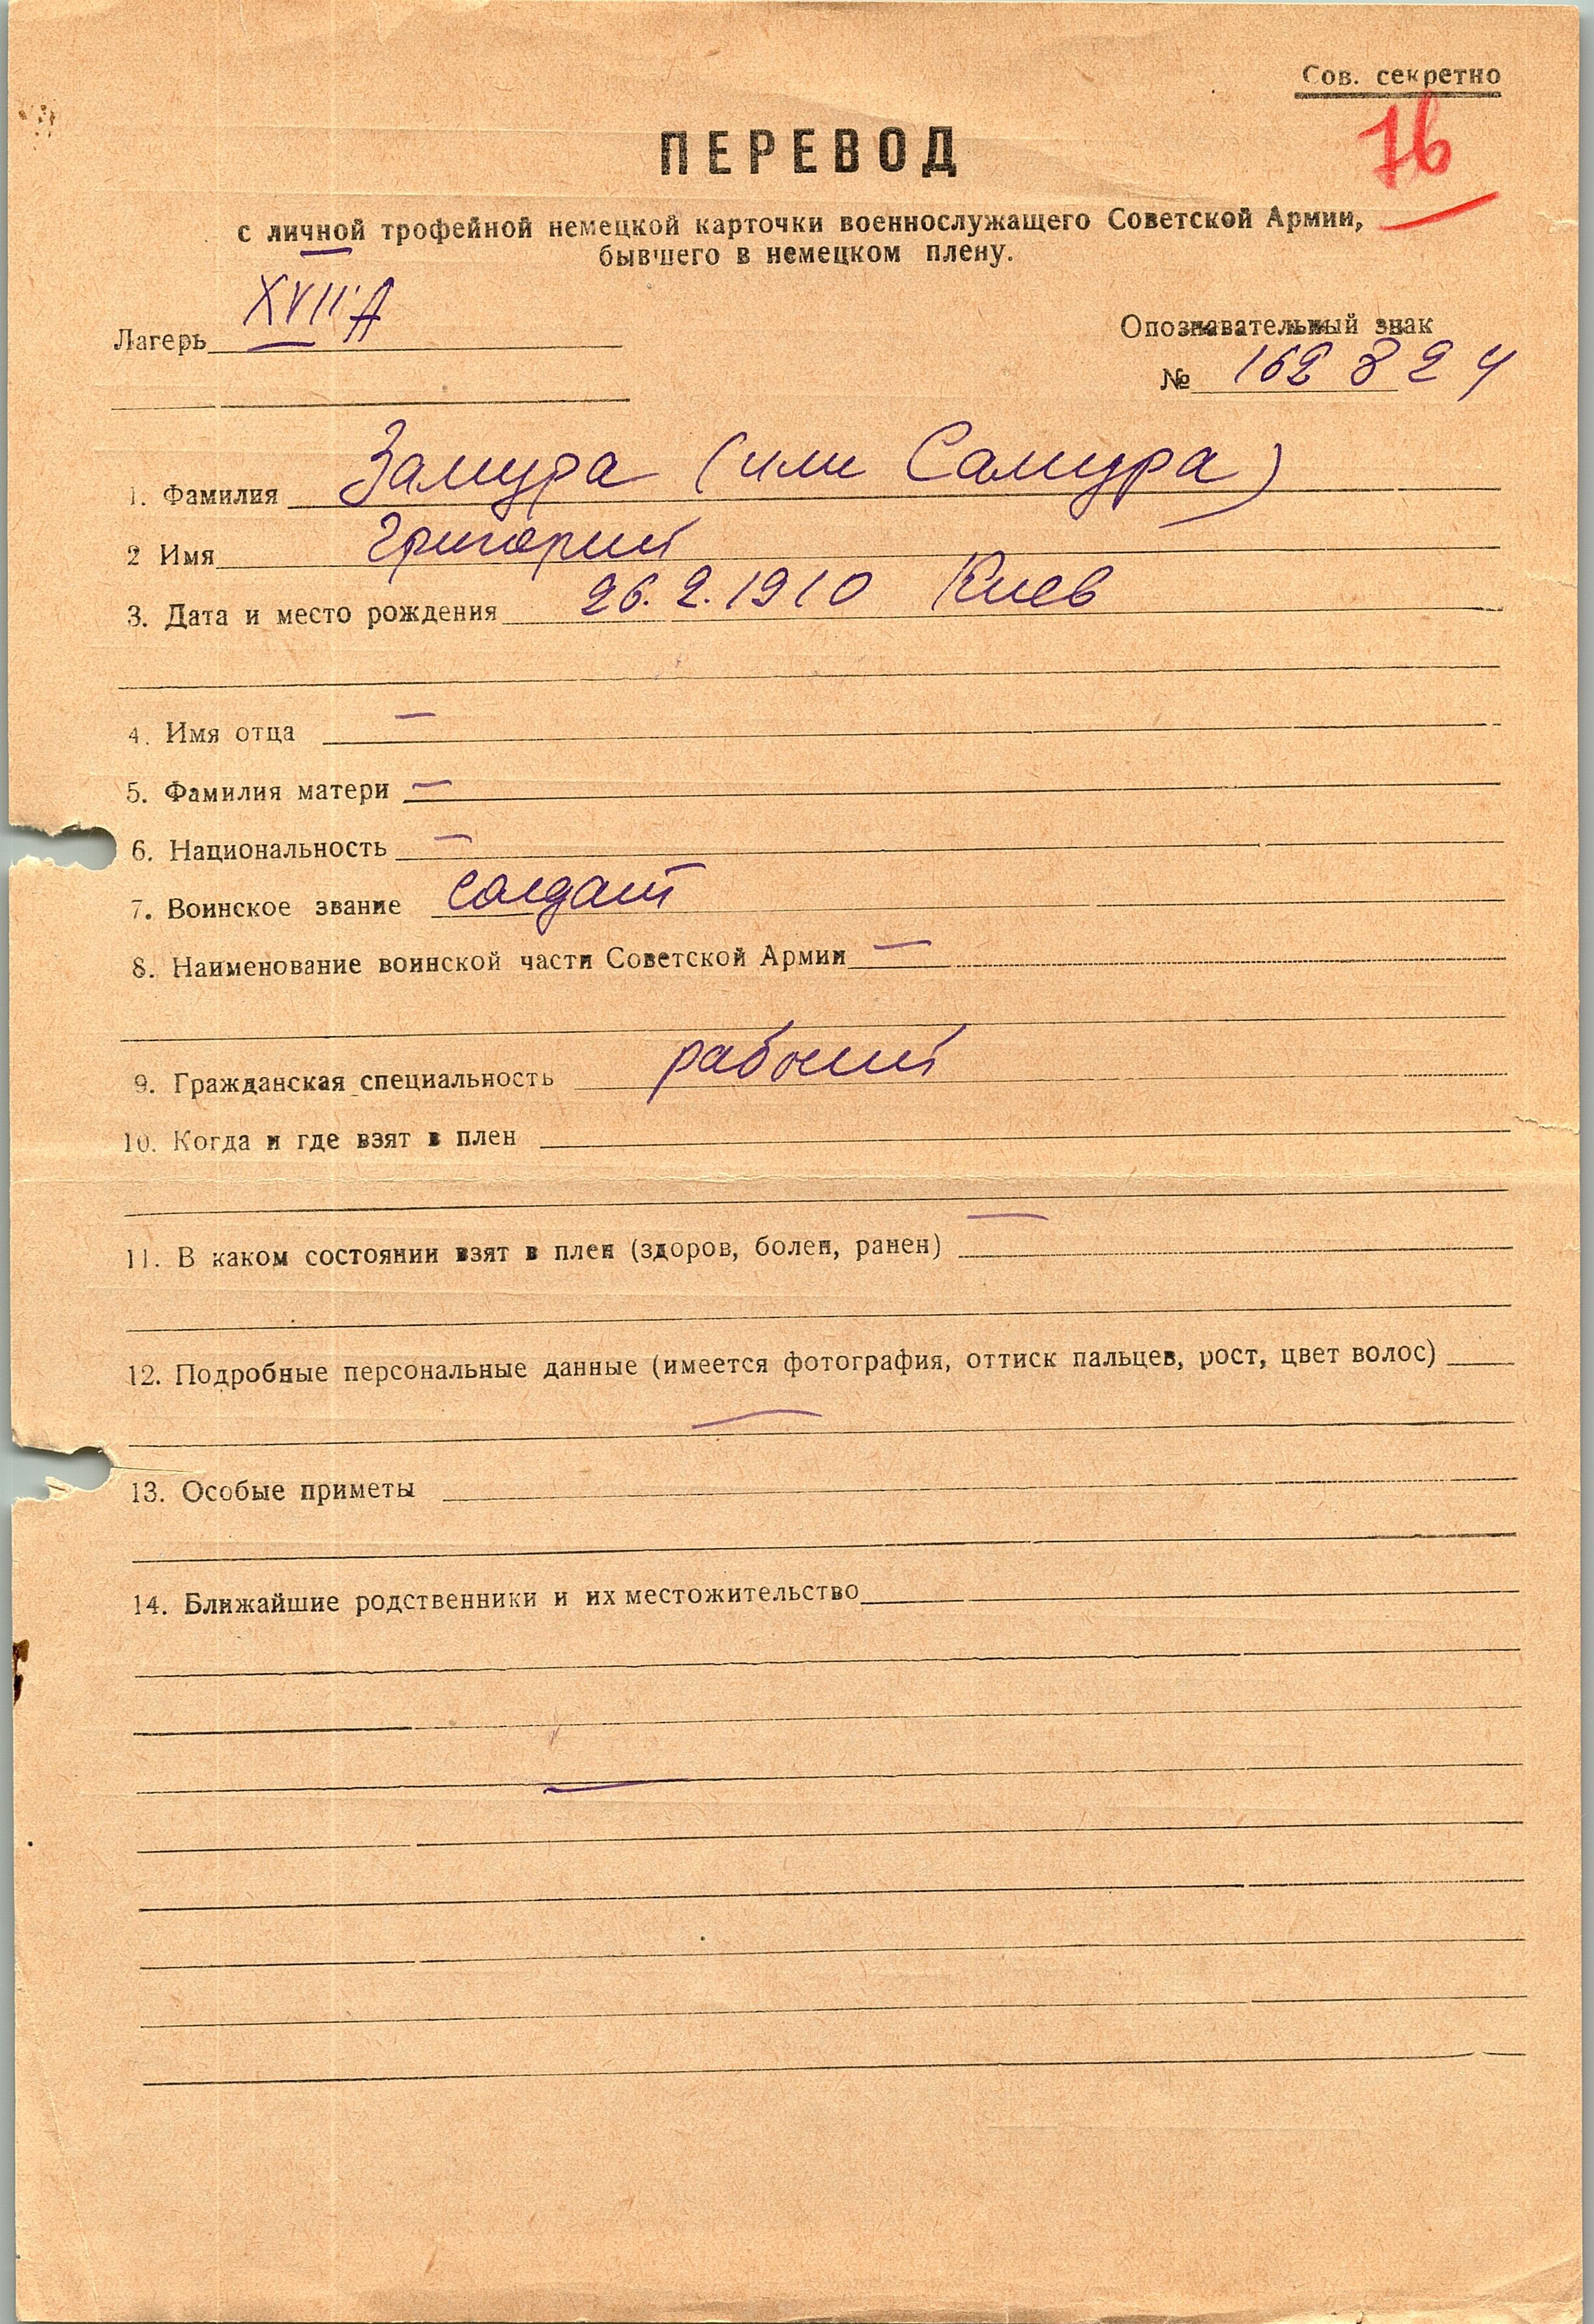 Сов. секретно
76
ПЕРЕВОД
с личной трофейной немецкой карточки военнослужащего Советской Армии,
бывшего в немецком плену.
Лагерь XVII A
Опознавательный знак
№ 162824
1. Фамилия Замура (или Самура)
2 Имя Григорий
3. Дата и место рождения 26.2.1910 Киев
4. Имя отца —
5. Фамилия матери —
6. Национальность —
7. Воинское звание солдат
8. Наименование воинской части Советской Армии —
9. Гражданская специальность рабочий
10. Когда и где взят в плен
11. В каком состоянии взят в плен (здоров, болен, ранен) —
12. Подробные персональные данные (имеется фотография, оттиск пальцев, рост, цвет волос)
—
13. Особые приметы
14. Ближайшие родственники и их местожительство
—